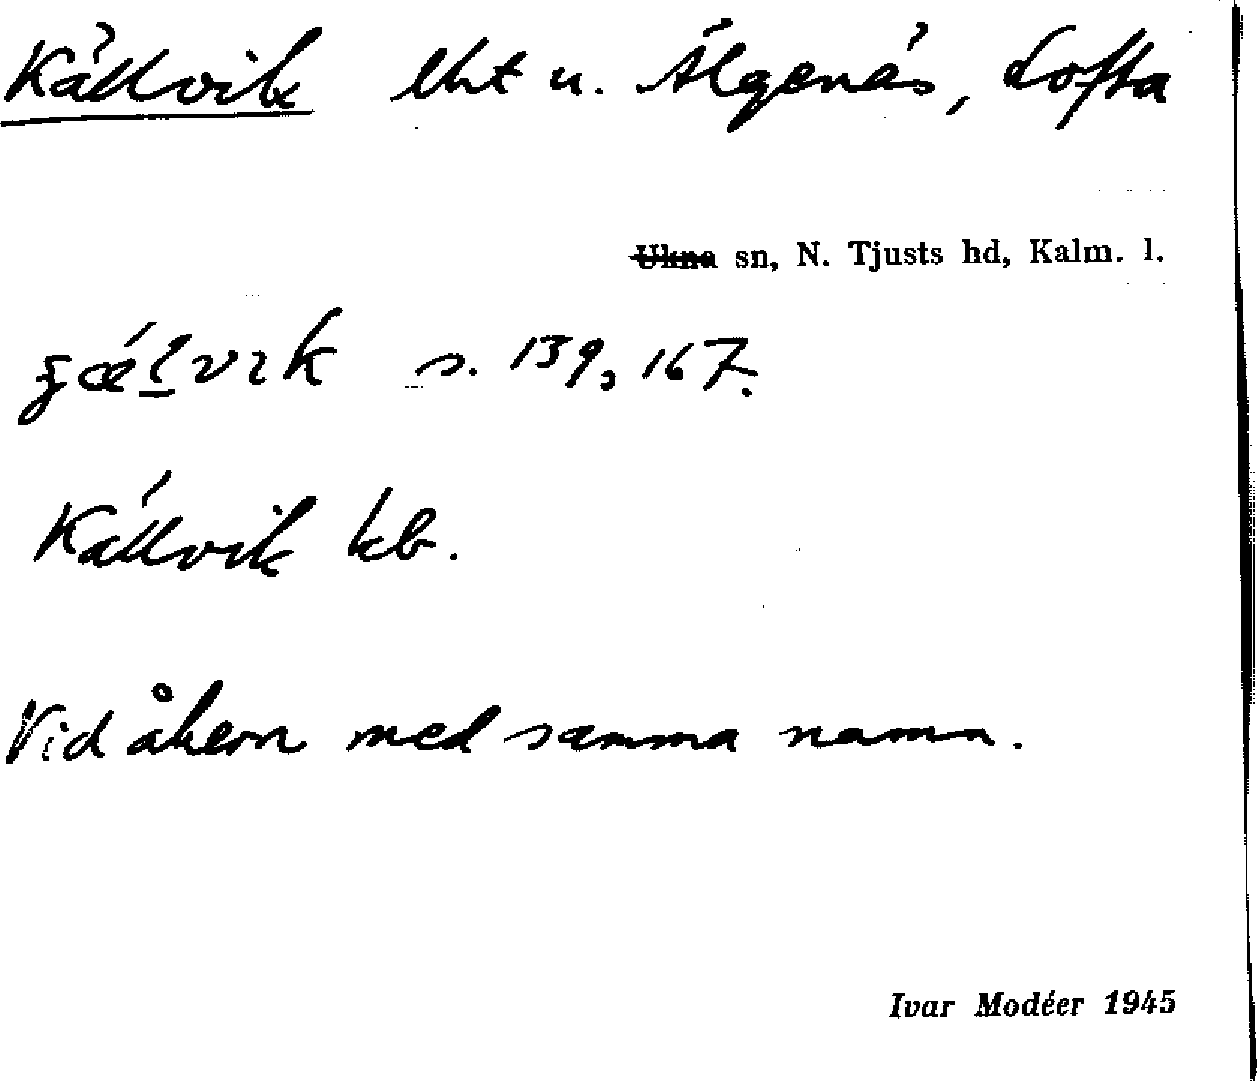 Källvik lht u. Älgenäs, Lofta
Ukna sn, N. Tjusts hd, Kalm. l.
s. 139, 167.
Källvik kb.
Vid åkern med samma namn.
Ivar Modéer 1945